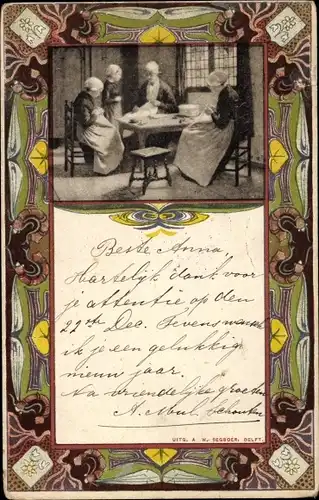 Beste Anna,
Hartelijk dank voor
je attentie op den
22ste Dec. Tevens wensch
ik je een gelukkig
nieuw jaar.
Na vriendelijke groeten
A. Schouten
UITG. A. W. SEGBOER. DELFT.